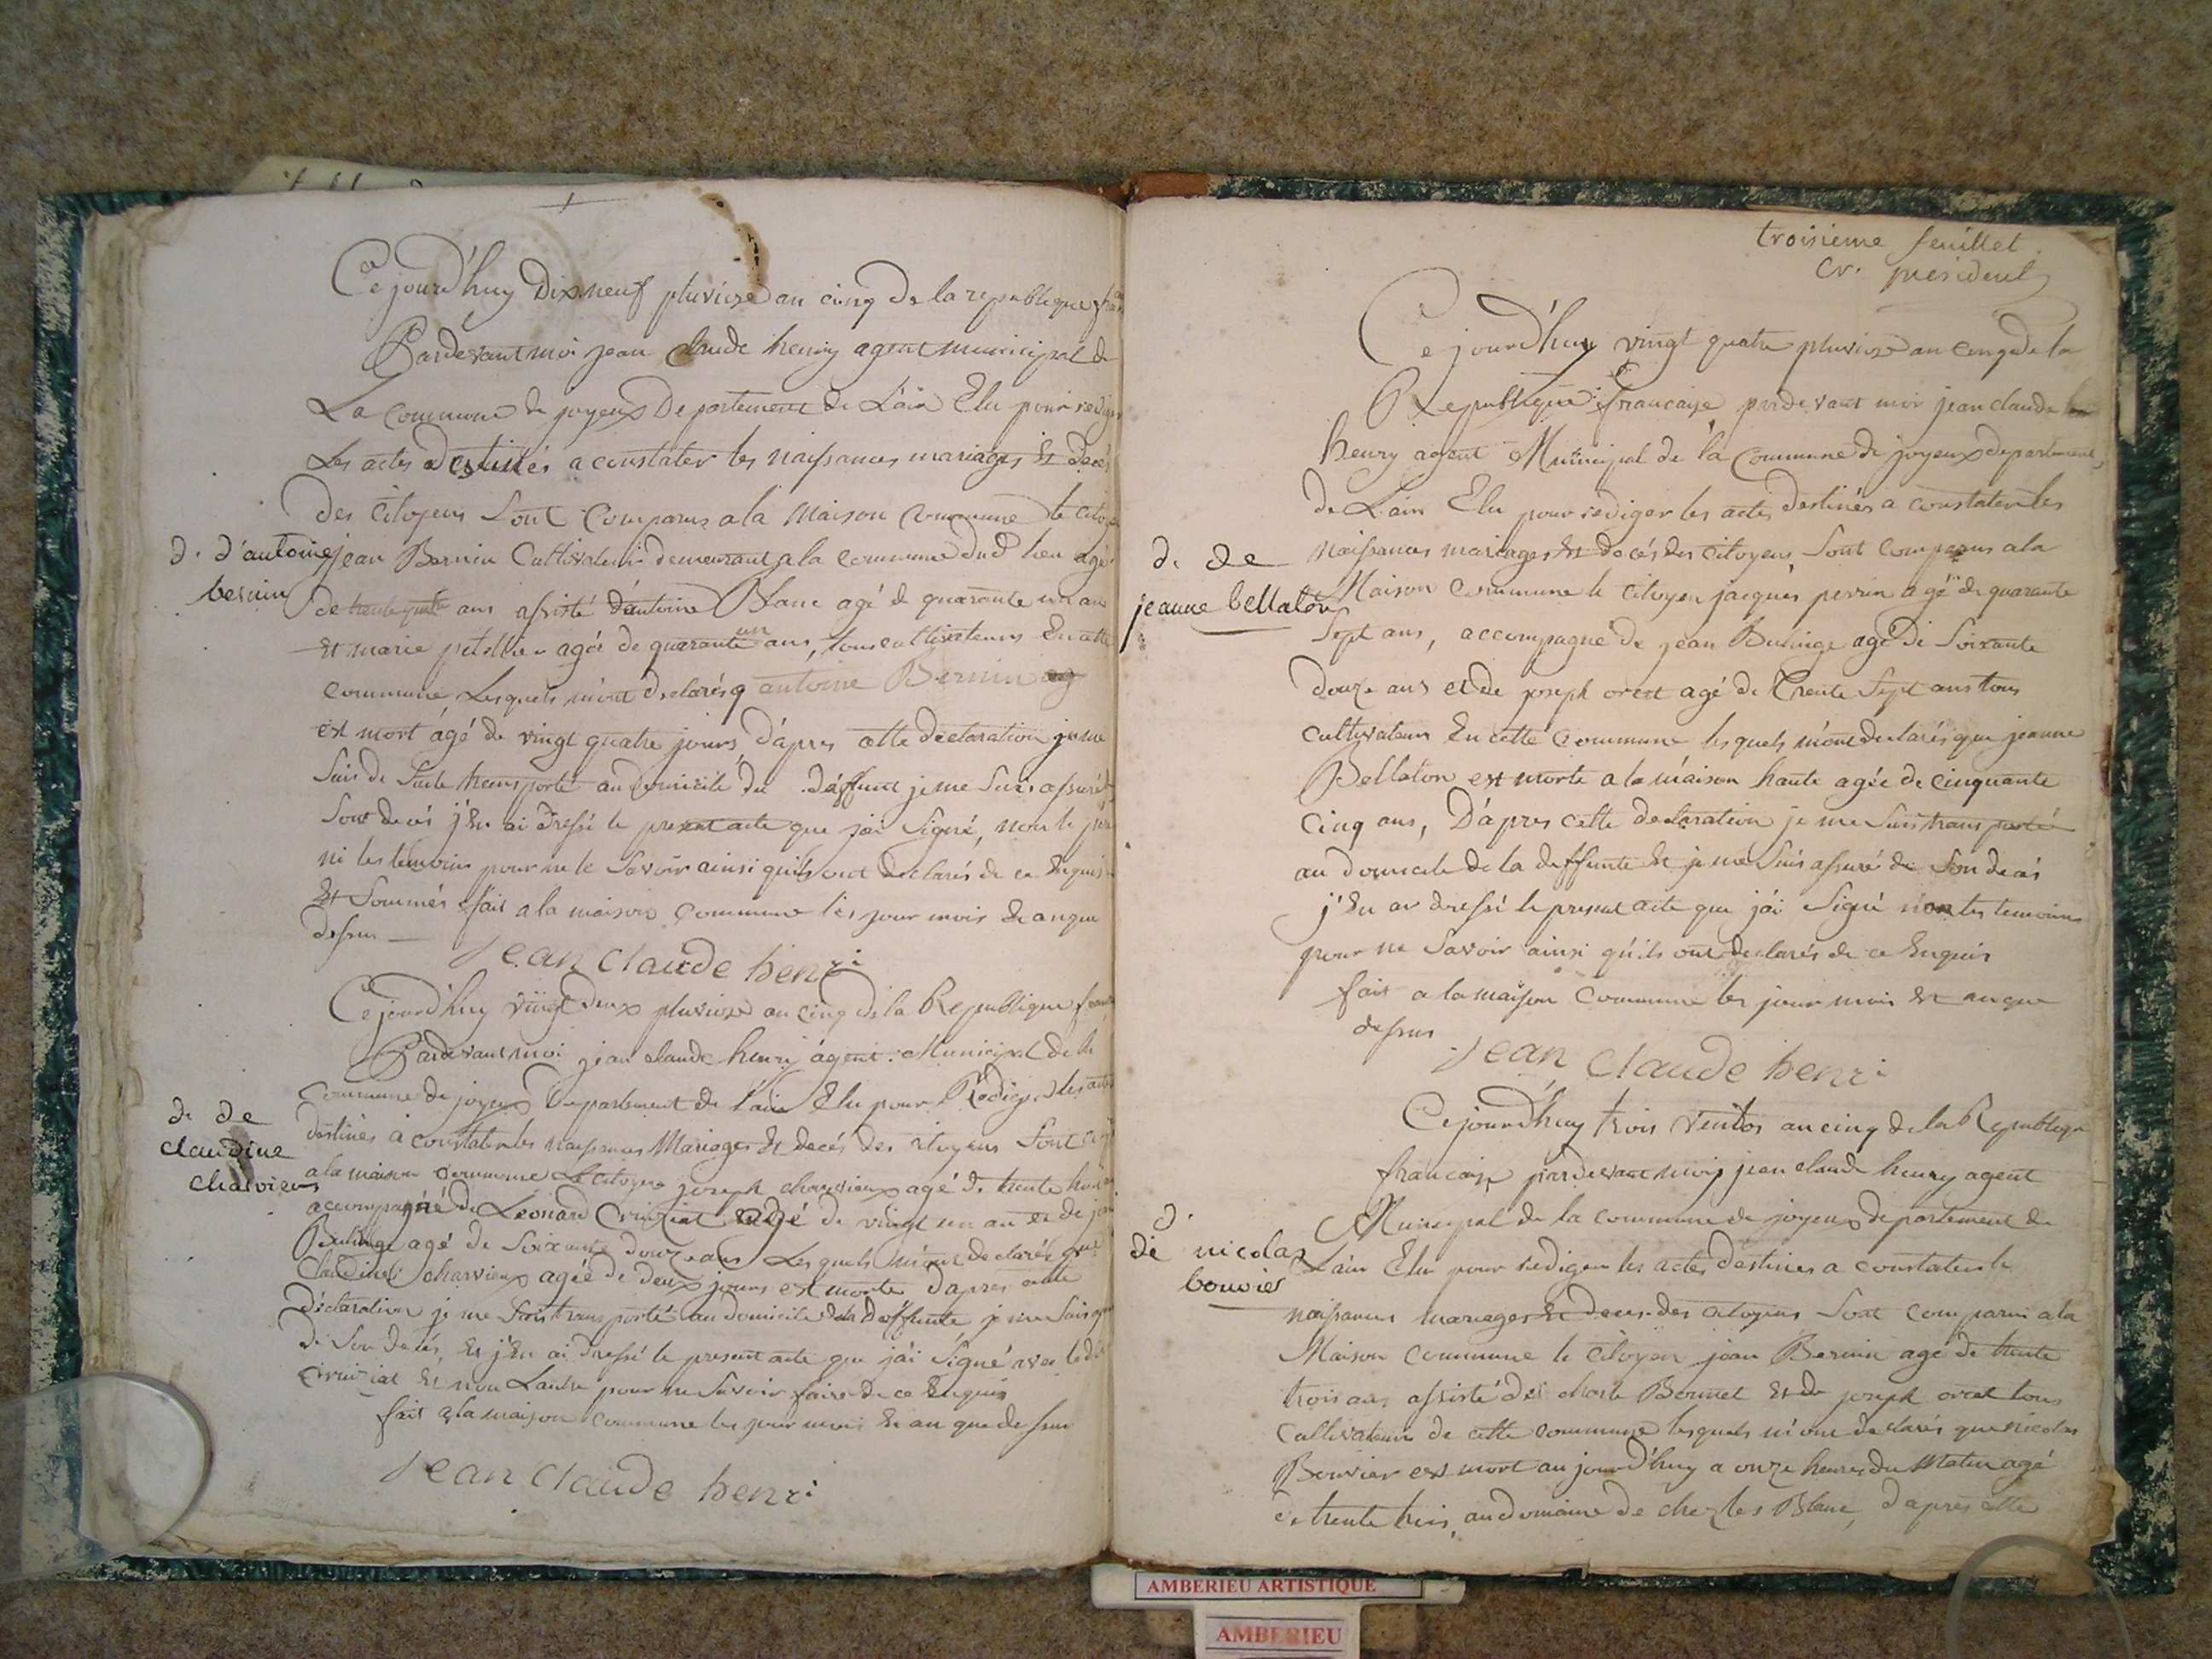 Cejourd'huy Dix neuf pluviose an cinq de la republique fran
Pardevant moi jean claude henry agent municipal de
La commune de joyeux Departement de L'ain Elu pour rediger
Les actes destinés a constater les naissances mariages Et decés
Des citoyens Sont comparus a la Maison commune le citoyen
d. d'antoine bernin
jean Bernin Cultivateur demeurant a la commune dud lieu agé
de trente quatre ans assisté d'antoine Blanc agé de quarante un an
Et marie agés de quarante un ans, tous cultivateurs En cette
commune, Lesquels m'ont declarés q antoine Bernin
est mort agé de vingt quatre jours, D'apres cette declaration je me
Suis de Suite transporté au domicile du deffunt je me Suis assuré de
Son decés j'En ai dressé le present acte que j'ai Signé, non le pere
ni les temoins pour ne le Savoir ainsi qu'ils ont declarés de ce Enquis
Et Sommés fait a la maison commune les jour mois Et an que
dessus
Jean claude henri
Cejourd'huy vingt deux pluviose an cinq de la Republique franc
Pardevant moi jean claude henry agent Municipal de la
commune de joyeux Departement de l'ain Elu pour Rediger les actes
d. de claudine charvieux
destinés a constater les naissances Mariages Et decés des citoyens Sont
a la maison commune Le citoyen joseph charvieux agé de trente huit
accompagné de Leonard Cruiziat agé de vingt un an et de jean
Bulinge agé de Soixante douze ans Lesquels m'ont declarés que
Claudine charvieux agée de deux jours est morte d'apres cette
déclaration je me Suis transporté au domicile de la Deffunte je me Suis
de Son decés, Et j'En ai dressé le present acte que j'ai Signé avec ledit
Cruiziat Et non Lautre pour ne Savoir faire de ce Enquis
fait a la maison commune les jour mois Et an que dessus
Jean claude henri
troisieme feuillet
cv. president
Cejourd'huy vingt quatre pluviose an cinq de la
Republique francaise pardevant moi jean claude
henry agent Municipal de la Commune de joyeux departement
de L'ain Elu pour rediger les actes destinés a constater les
naissances mariages Et decés des citoyens, Sont comparus a la
d. de jeanne bellaton
Maison commune le citoyen jacques perrin agé de quarante
Sept ans, accompagné de jean Bulinge agé de Soixante
douze ans et de joseph orcet agé de trente Sept ans tous
cultivateurs En cette commune lesquels m'ont declarés que jeanne
Bellaton est morte a la maison haute agée de cinquante
cinq ans, D'apres cette declaration je me Suis transporté
au domicile de la deffunte Et je me Suis assuré de Son decés
j'En ai dressé le present acte que j'ai Signé non les temoins
pour ne Savoir ainsi qu'ils ont declarés de ce Enquis
fait a la maison commune les jour mois Et an que
dessus
Jean claude henri
Cejourd'huy trois ventos an cinq de la Republique
francaise pardevant moi jean claude henry agent
Municipal de la commune de joyeux departement de
d. de nicolas bouvier
L'ain Elu pour rediger les actes destines a constater le
naissances mariages Et deces des citoyens Sont comparus a la
Maison commune le citoyen jean Bernin agé de trente
trois ans assisté de Bonnet Et de joseph orcet tous
Cultivateurs de cette commune lesquels m'ont declarés que nicolas
Bouvier est mort au jourd'huy a onze heures du Matin agé
de trente trois, au domaine de chez les Blanc, d'apres cette
AMBERIEU ARTISTIQUE
AMBERIEU